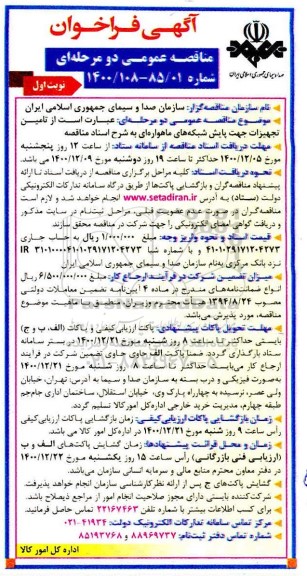 آگهی فراخوان
مناقصه عمومی دو مرحله‌ای
شماره ۸۵/۰۱-۱۴۰۰/۱۰۸
نوبت اول
صدا و سیمای جمهوری اسلامی ایران
نام سازمان مناقصه‌گزار: سازمان صدا و سیمای جمهوری اسلامی ایران
موضوع مناقصه عمومی دو مرحله‌ای: عبارت است از تامین
تجهیزات جهت پایش شبکه‌های ماهواره‌ای به شرح اسناد مناقصه
مهلت دریافت اسناد مناقصه از سامانه ستاد: از ساعت ۱۲ روز پنجشنبه
مورخ ۱۴۰۰/۱۲/۰۵ حداکثر تا ساعت ۱۹ روز دوشنبه مورخ ۱۴۰۰/۱۲/۰۹ می باشد.
نحوه دریافت اسناد: کلیه مراحل برگزاری مناقصه از دریافت اسناد تا ارائه
پیشنهاد مناقصه‌گران و بازگشایی پاکت‌ها از طریق درگاه سامانه تدارکات الکترونیکی
دولت (ستاد) به آدرس www.setadiran.ir انجام خواهد شد و لازم است
مناقصه‌گران در صورت عدم عضویت قبلی، مراحل ثبت‌نام در سایت مذکور
و دریافت گواهی امضای الکترونیکی را جهت شرکت در مناقصه محقق سازند
قیمت اسناد و نحوه واریز وجه: مبلغ ۱/۰۰۰/۰۰۰ ریال به حساب جاری
نزد بانک مرکزی به‌نام سازمان صدا و سیمای جمهوری اسلامی ایران
میزان تضمین شرکت در فرآیند ارجاع کار: مبلغ ۶/۵۰۰/۰۰۰/۰۰۰ ریال
انواع ضمانت‌نامه‌های مندرج در ماده ۴ آیین‌نامه تضمین معاملات دولتی
مناقصه، مورد پذیرش می‌باشد.
مهلت تحویل پاکات پیشنهادی: پاکت ارزیابی‌کیفی و پاکات (الف، ب و ج)
بایستی حداکثر تا ساعت ۸ روز شنبه مورخ ۱۴۰۰/۱۲/۲۱ در بستر سامانه
ستاد بارگذاری گردد. ضمناً پاکت الف حاوی تضمین شرکت در فرآیند
ارجاع کار می‌بایست حداکثر تا ساعت ۸ روز شنبه مورخ ۱۴۰۰/۱۲/۲۱
به‌صورت فیزیکی و درب بسته به سازمان صدا و سیما به آدرس: تهران، خیابان
ولی عصر، نرسیده به چهارراه پارک وی، خیابان استقلال، ساختمان اداری جام‌جم
طبقه چهارم، مدیریت خرید خارجی اداره‌کل امور کالا تسلیم گردد.
زمان بازگشایی پاکات ارزیابی‌کیفی: زمان بازگشایی پاکات ارزیابی‌کیفی
رأس ساعت ۹ روز شنبه مورخ ۱۴۰۰/۱۲/۲۱ در اداره‌کل امور کالا می باشد.
زمان و محل قرائت پیشنهادها: زمان گشایش پاکت‌های الف و ب
(ارزیابی فنی بازرگانی) رأس ساعت ۱۵ روز یکشنبه مورخ ۱۴۰۰/۱۲/۲۲
در دفتر معاون محترم منابع مالی و سرمایه انسانی سازمان می‌باشد.
گشایش پاکت‌های ج پس از ارائه نظر کارشناسی سازمان انجام خواهد پذیرفت.
شرکت‌کننده بایستی دارای مجوز صلاحیت انجام امور از مراجع ذیصلاح باشد.
برای کسب اطلاعات بیشتر با شماره تلفن ۲۲۱۶۷۴۶۳ تماس حاصل فرمائید.
مرکز تماس سامانه تدارکات الکترونیک دولت: ۴۱۹۳۴-۰۲۱
شماره تماس دفتر ثبت‌نام: ۸۸۹۶۹۷۳۷ و ۸۵۱۹۳۷۶۸
اداره کل امور کالا